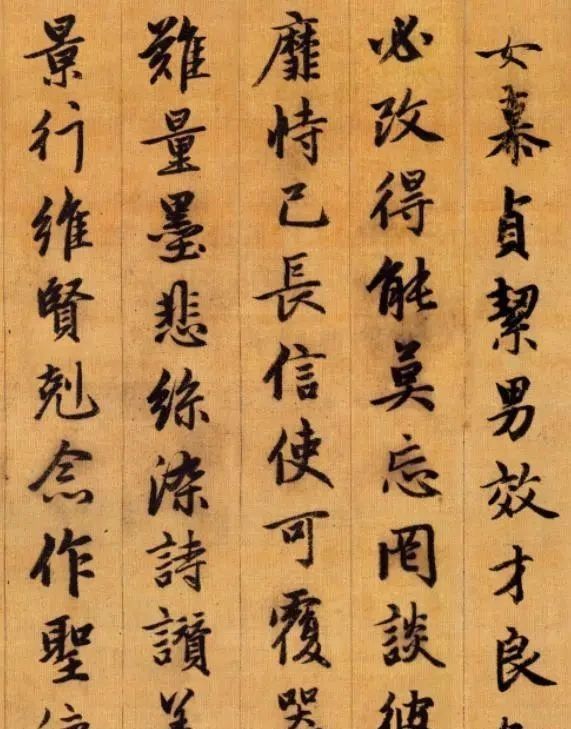 女慕貞絜男效才良
必改得能莫忘罔談彼
靡恃己長信使可覆
難量墨悲絲染詩讚
景行維賢剋念作聖